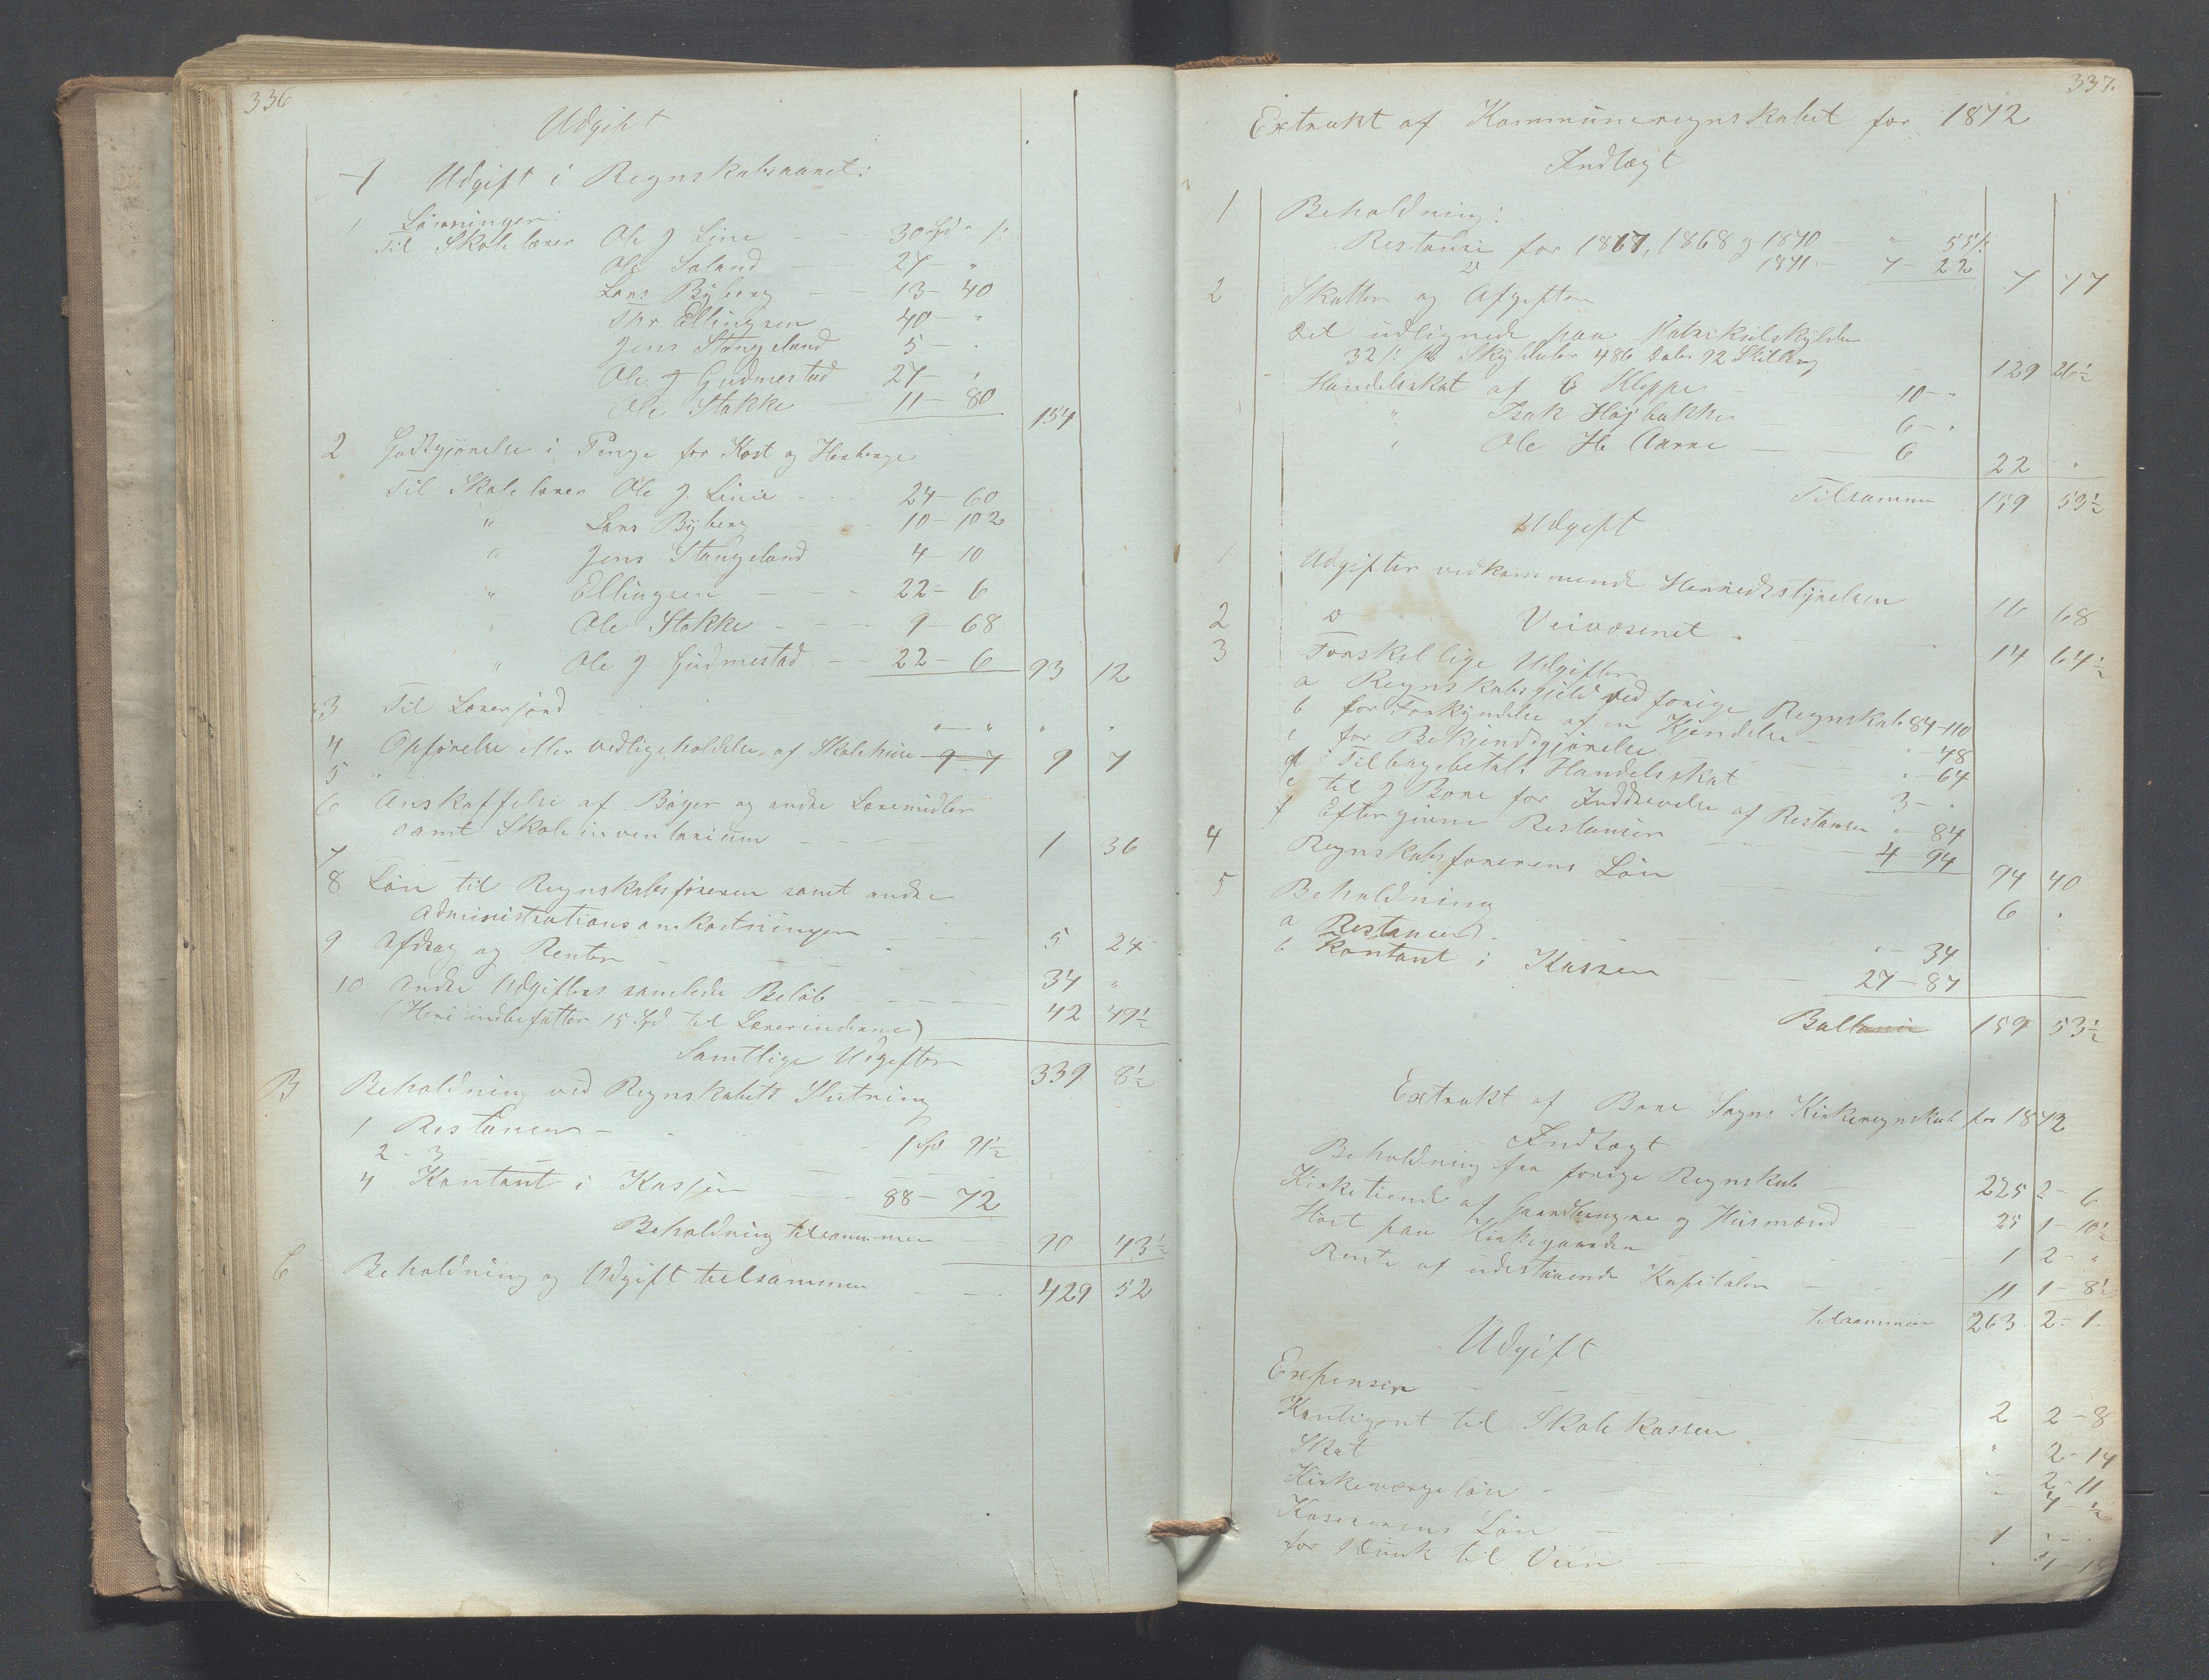 336
Udgift
A Udgift i Regnskabsaaret:
1 Lönninger:
Til Skolelærer Ole J Line - - 30 Spd " /:
Ole Soland - 27 - "
Lars Byberg - 13 - 40
Thr Ellingsen - 40 - "
Jens Stangeland 5 - "
Ole J Gudmestad 27 - "
Ole Stokke - 11 - 80 154
2 Godtgjörelse i Penge for Kost og Herberge
Til Skolelærer Ole J. Line - - 24 - 60
" Lars Byberg - - 10 - 102
" Jens Stangeland 4 - 10
" Ellingsen - - - 22 - 6
" Ole Stokke - - - 9 - 68
" Ole J Gudmestad - - 22 - 6 93 12
3 Til Lærerjord - " - " " "
4 Opförelse eller vedligeholdelse af Skolehuse 9 7 9 7
5 "
6 Anskaffelse af Böger og andre Læremidler
samt Skoleinventarium - - - - 1 36
7
8 Lön til Regnskabsföreren samt andre
Administrationsomkostninger - - - 5 24
9 Afdrag og Renter - - - - - - - 34 "
10 Andre Udgifters samlede Belöb - - - - - 42 49½
(Heri indbefatter 15 Spd til Lærerinderne)
Samtlige Udgifter 339 8½
B Beholdning ved Regnskabets Slutning
1 Restancer - - - 1 Spd 91½
2 - 3 - -
4 Kontant i Kassen - - - 88 - 72
Beholdning tilsammen - - 90 43½
C Beholdning og Udgift tilsammen - - - 429 52
337.
Extrakt af Kommuneregnskabet for 1872
Indtægt
1 Beholdning:
Restance for 1867, 1868 & 1870 " 55 /:
do 1871 - 7 - 22 7 77
2 Skatter og Afgifter
Det udlignede paa Matrikulskylden
32 /: pr Skylddaler 486 Daler 92 Skilling 129 26½
Handelsskat af C Kleppe - 10 - "
" Isak Höjbakke 6 - "
" Ole H. Aarre - - 6 22 "
Tilsammen 159 53½
Udgift
1 Udgifter vedkommende Herredsstyrelsen 16 68
2 do Veivæsenet - - 14 64½
3 Forskellige Udgifter
a Regnskabsgield ved forige Regnskab 84 - 110
b for Forkyndelse af en Kjendelse - " - 48
c for Bekjendtgjörelse " - 64
d Tilbagebetalt Handelsskat 3 - "
e til J Bore for Inddrevelse af Restancer " 84
f Eftergivne Restancer - - - 4 94 94 40
4 Regnskabsförerens Lön - - - 6 "
5 Beholdning
a Restancer - - " - 34
b Kontant i Kassen - - - 27 - 87
Ballance 159 53½
Extrakt af Bore Sogns Kirkeregnskab for 1872
Indtægt
Beholdning fra forige Regnskab - 225 2 - 6
Kirketiende af Gaardbrugere og Husmænd 25 1 - 10½
Höst paa Kirkegaarden - - - 1 2 - "
Rente af udestaaende Kapitaler - - 11 1 - 8½
tilsammen 263. 2 - 1.
Udgift
Expenser - - - - - 2 2 - 8
Kontigent til Skolekassen - " 2 - 14
Skat - - " 2 - 11
Kirkeværgelön - - " 4 - ½
Kasererens Lön - 1 " - "
for Dunk til Viin - " 1 15